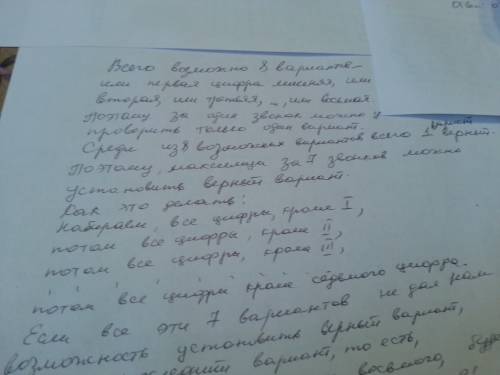 Всего возможно 8 вариантов –
или первая цифра лишняя, или
вторая, или третья, ..., или восьмая.
Поэтому за один звонок можно
проверить только один вариант.
Среди из 8 возможных вариантов всего 1 верный.
Поэтому, максимум за 7 звонков можно
установить верный вариант.
Как это делать:
Набираем, все цифры, кроме I,
потом все цифры, кроме II,
потом все цифры, кроме III,
потом все цифры кроме седьмого цифра.
Если все эти 7 вариантов не дал нам
возможность установить верный вариант,
вариант, то есть,
восьмого,